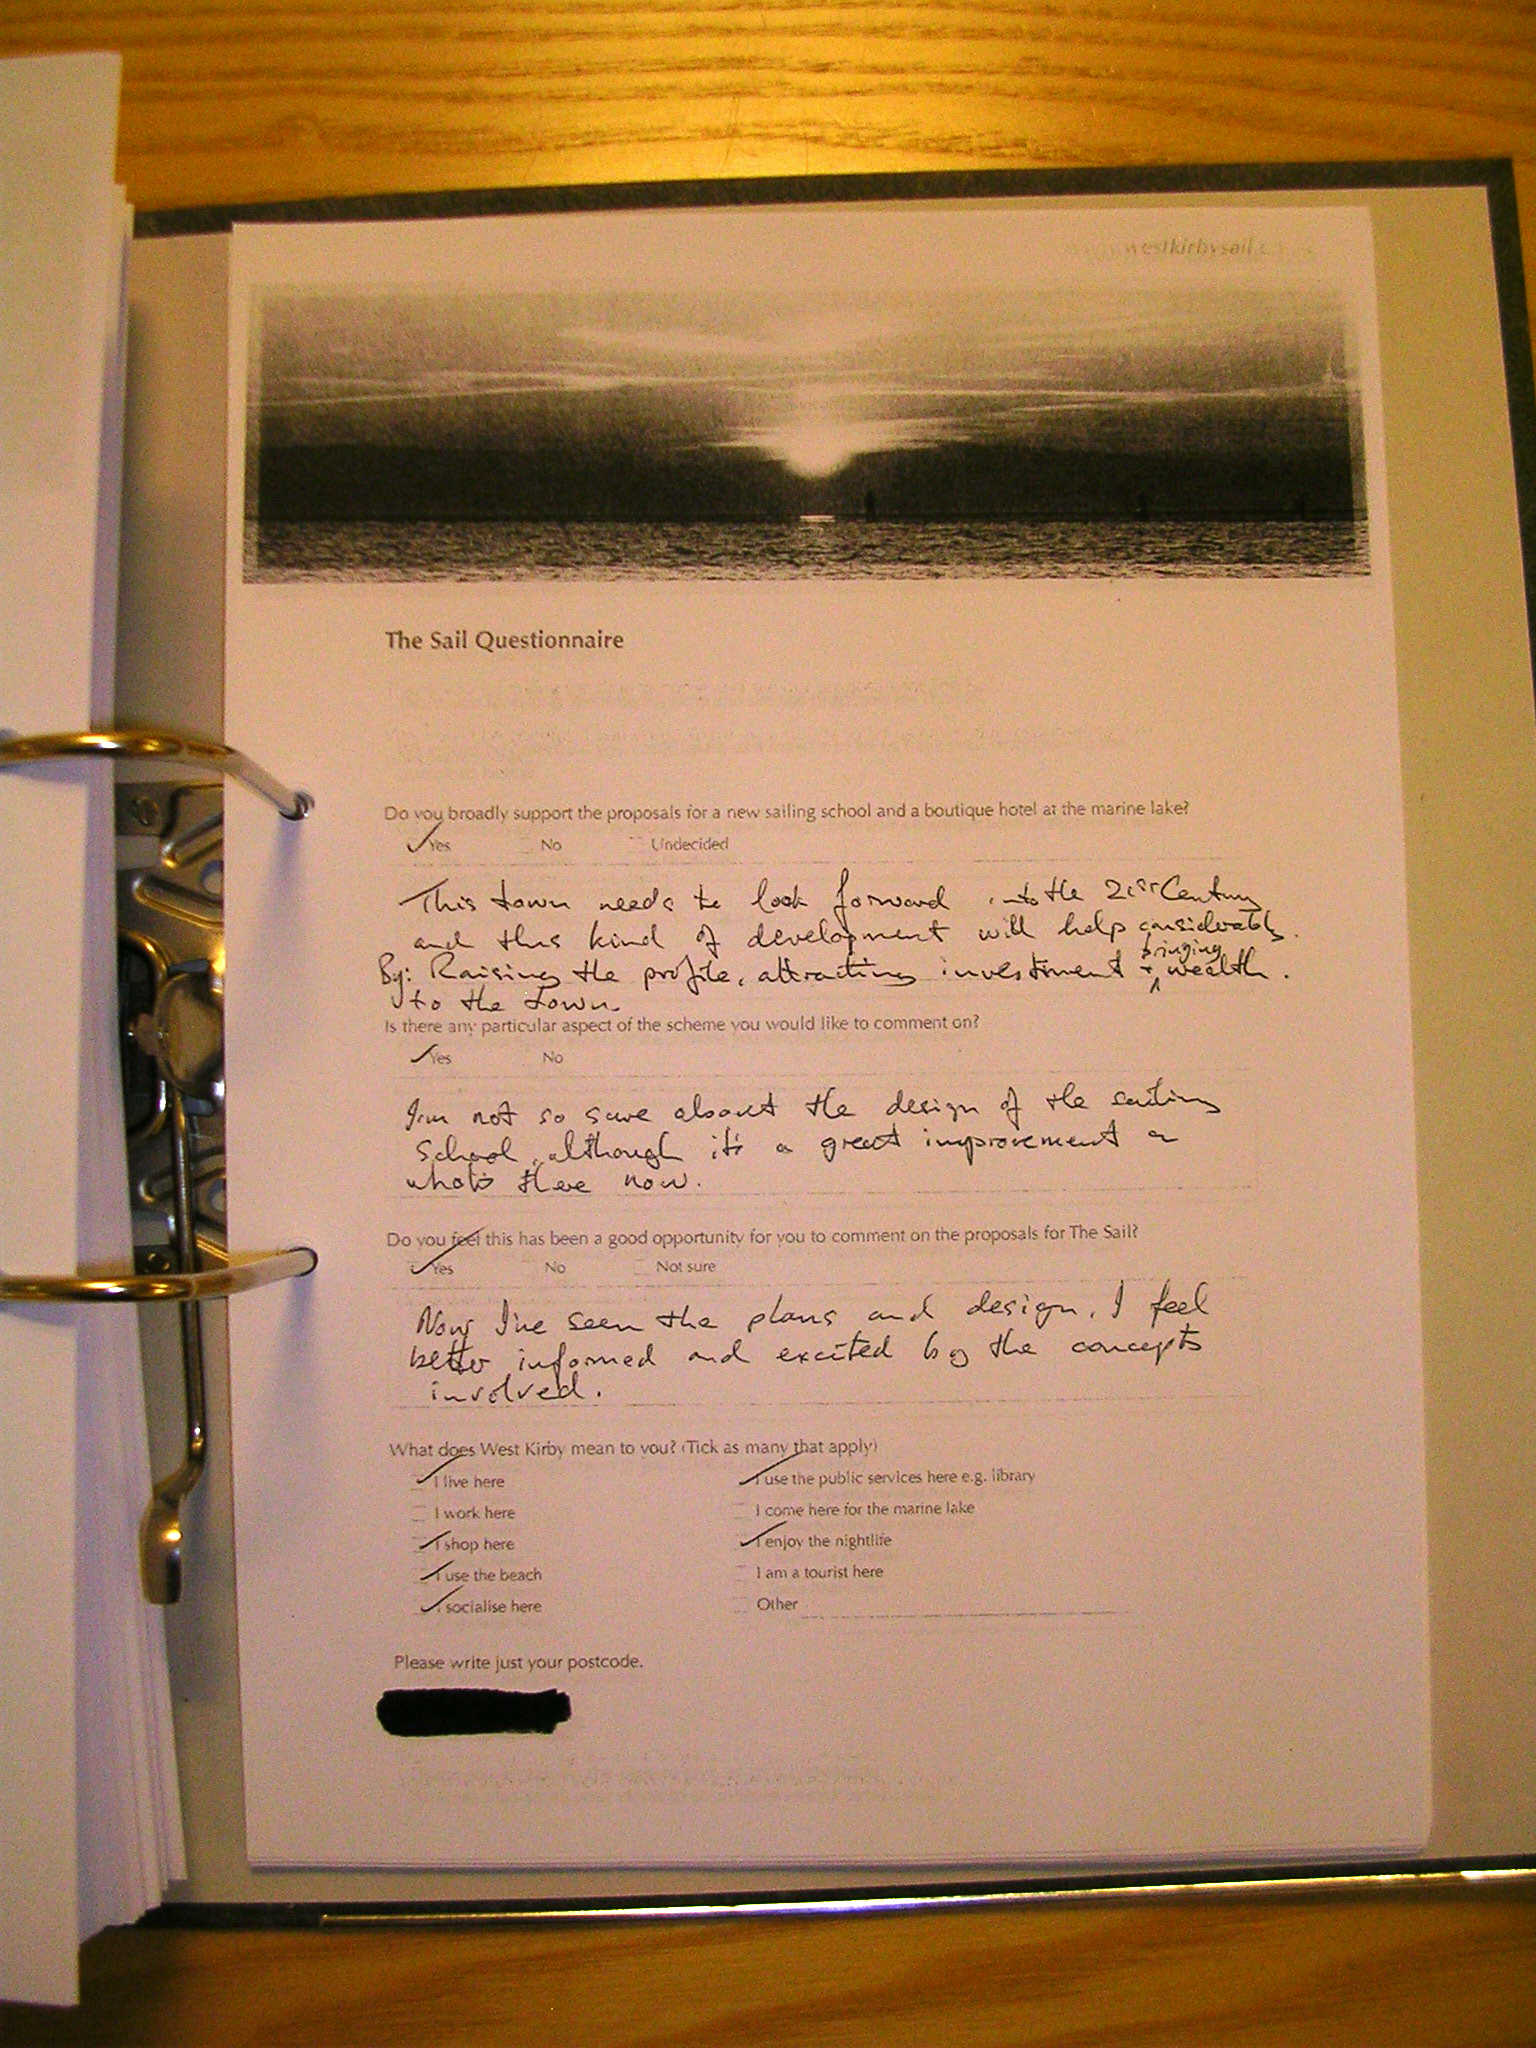 westkirbysail
The Sail Questionnaire
Do you broadly support the proposals for a new sailing school and a boutique hotel at the marine lake?
Yes No Undecided
This town needs to look forward into the 21st Century
and this kind of development will help considerably.
By: Raising the profile, attracting investment + bringing wealth.
to the town.
Is there any particular aspect of the scheme you would like to comment on?
Yes No
I'm not so sure about the design of the sailing
school, although it's a great improvement on
what's there now.
Do you feel this has been a good opportunity for you to comment on the proposals for The Sail?
Yes No Not sure
Now I've seen the plans and design, I feel
better informed and excited by the concepts
involved.
What does West Kirby mean to you? (Tick as many that apply)
I live here
I work here
I shop here
I use the beach
I socialise here
I use the public services here e.g. library
I come here for the marine lake
I enjoy the nightlife
I am a tourist here
Other
Please write just your postcode.